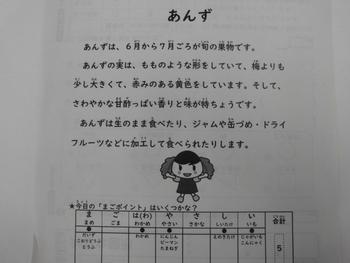 あんず
あんずは、6月から7月ごろが旬の果物です。
あんずの実は、もものような形をしていて、梅よりも
少し大きくて、赤みのある黄色をしています。そして、
さわやかな甘酸っぱい香りと味が特ちょうです。
あんずは生のまま食べたり、ジャムや缶づめ・ドライ
フルーツなどに加工して食べられたりします。
★今日の「まごポイント」はいくつかな？
ま ご は(わ) や さ し い 合計
まめ ごま わかめ やさい さかな しいたけ いも
● ● ● ● ●
だいず わかめ にんじん えのきたけ じゃがいも 5
こおりどうふ ピーマン こんにゃく
とうふ たまねぎ